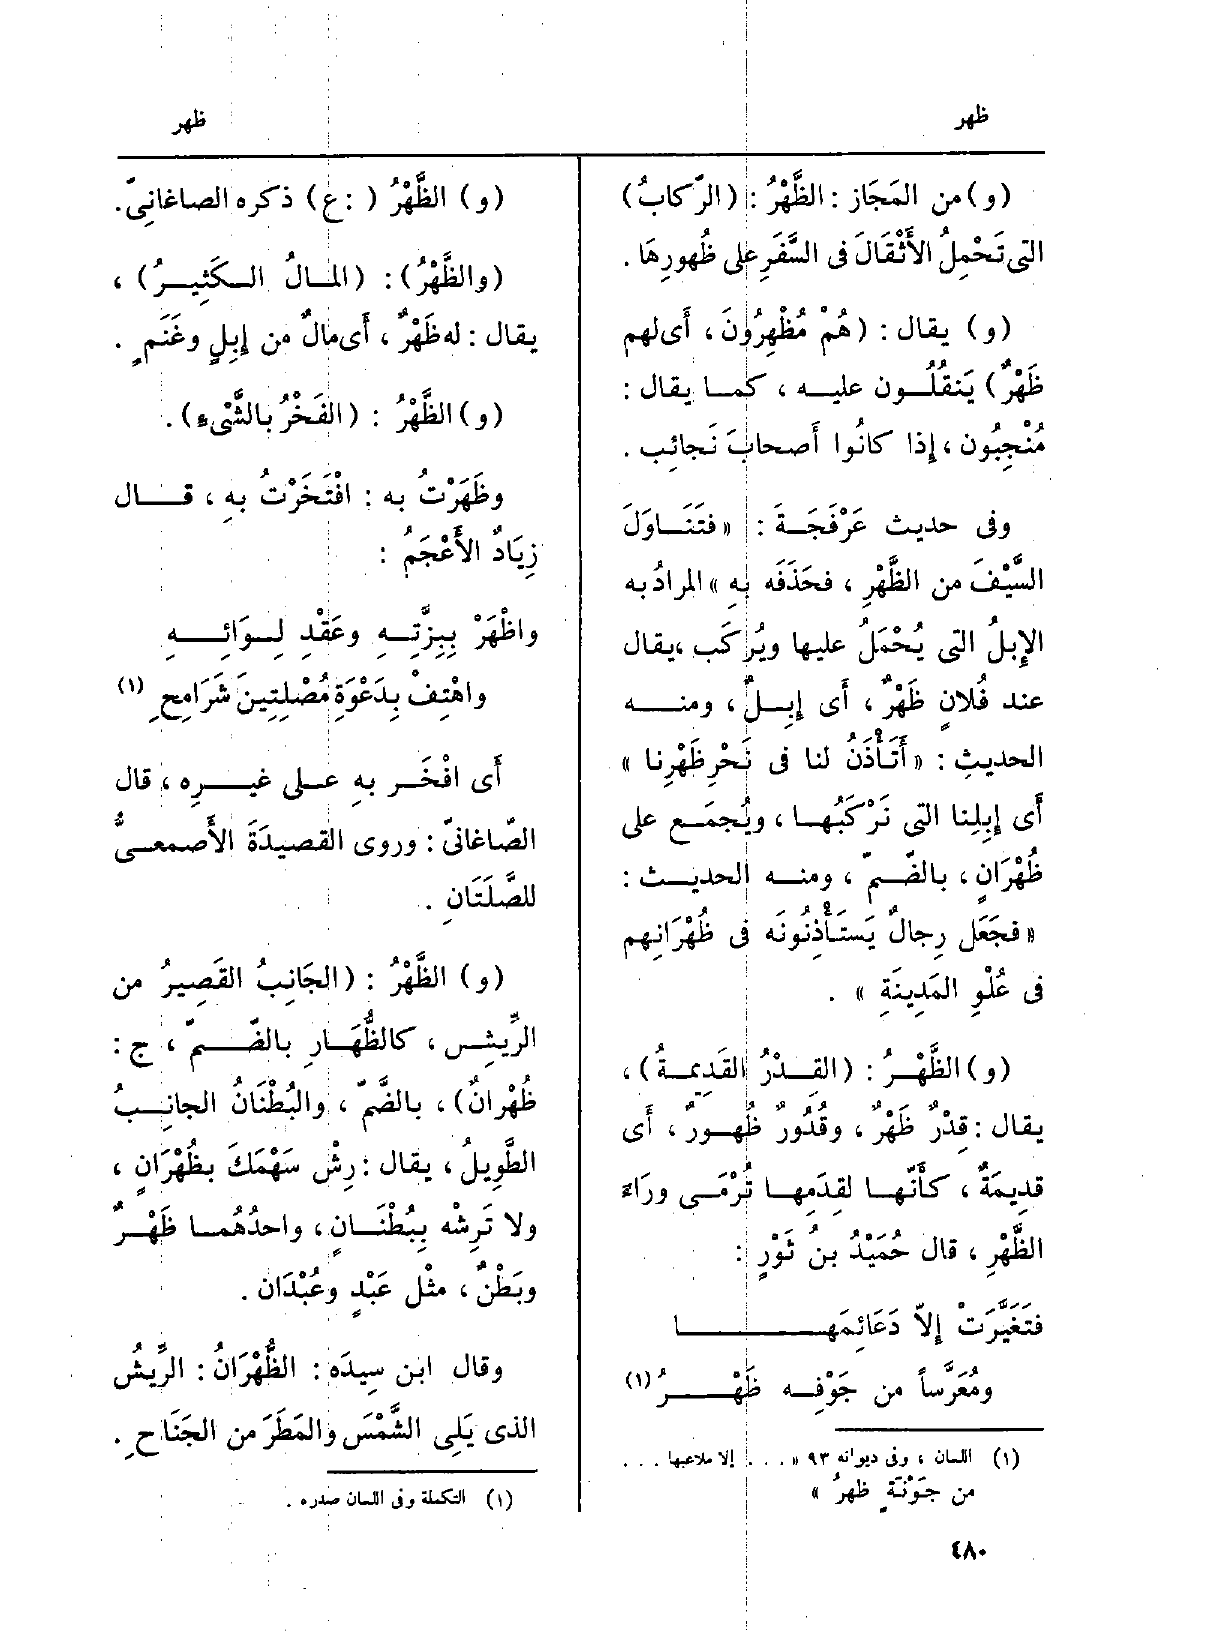 ظهر
ظهر
(و) من المَجَاز : الظَّهْرُ : (الرِّكابُ)
التى تَحْمِلُ الأَثْقَالَ فى السَّفَرِ على ظُهورِهَا .
(و) يقال : (هُمْ مُظْهِرُونَ ، أَى لهم
ظَهْرٌ) يَنقُلُون عليه ، كما يقال :
مُنْجِبُون ، إِذا كانُوا أَصحابَ نَجائب .
وفى حديث عَرْفَجَةَ : « فتَنَاوَلَ
السَّيْفَ من الظَّهْرِ ، فحَذَفَه بِهِ » المرادُ به
الإِبلُ التى يُحْمَلُ عليها ويُركَب ، يقال
عند فُلانٍ ظَهْرٌ ، أَى إِبِلٌ ، ومنه
الحديثِ : « أَتَأْذَنُ لنا فى نَحْرِ ظَهْرِنا »
أَى إِبِلِنا التى نَرْكَبُها ، ويُجمَع على
ظُهْرَانٍ ، بالضَّمّ ، ومنه الحديث :
« فجَعَل رِجالٌ يَستَأْذِنُونَه فى ظُهْرَانِهم
فى عُلْوِ المَدِينَةِ » .
(و) الظَّهْرُ : (القِدْرُ القَدِيمَةُ) ،
يقال : قِدْرٌ ظَهْرٌ ، وقُدُورٌ ظُهورٌ ، أَى
قديمَةٌ ، كأَنّها لقِدَمِها تُرْمَى وراءَ
الظَّهْرِ ، قال حُمَيْدُ بنُ ثَوْرٍ :
فتَغَيَّرَتْ إِلاّ دَعَائِمَها
ومُعَرَّساً من جَوْفِه ظَهْرُ (١)
(١) اللسان ، وفى ديوانه ٩٣ « . . . إلا ملاعبها . . .
من جَوْنَةٍ ظهرُ »
(و) الظَّهْرُ ( : ع) ذكره الصاغانىّ.
(والظَّهْرُ) : (المالُ الكَثِيرُ) ،
يقال : له ظَهْرٌ ، أَى مالٌ من إِبِلٍ وغَنَمٍ .
(و) الظَّهْرُ : (الفَخْرُ بالشَّىْءِ) .
وظَهَرْتُ به : افْتَخَرْتُ بِهِ ، قال
زِيَادٌ الأَعْجَمُ :
واظْهَرْ بِبِزَّتِهِ وعَقْدِ لِوَائِهِ
واهْتِفْ بِدَعْوَةِ مُصْلِتِينَ شَرَامِحِ (١)
أَى افْخَر به على غيرِه ، قال
الصّاغانىّ : وروى القصيدَةَ الأَصمعىُّ
للصَّلَتَانِ .
(و) الظَّهْرُ : (الجَانِبُ القَصِيرُ من
الرِّيشِ ، كالظُّهَارِ بالضَّمّ ، ج :
ظُهْرانٌ) ، بالضَّمّ ، والبُطْنَانُ الجانِبُ
الطَّوِيلُ ، يقال : رِشْ سَهْمَكَ بظُهْرَانٍ ،
ولا تَرِشْه بِبُطْنَانٍ ، واحدُهُما ظَهْرٌ
وبَطْنٌ ، مثْل عَبْدٍ وعُبْدَان .
وقال ابن سِيدَه : الظُّهْرَانُ : الرِّيشُ
الذى يَلِى الشَّمْسَ والمَطَرَ من الجَنَاحِ .
(١) التكملة وفى اللسان صدره .
٤٨٠